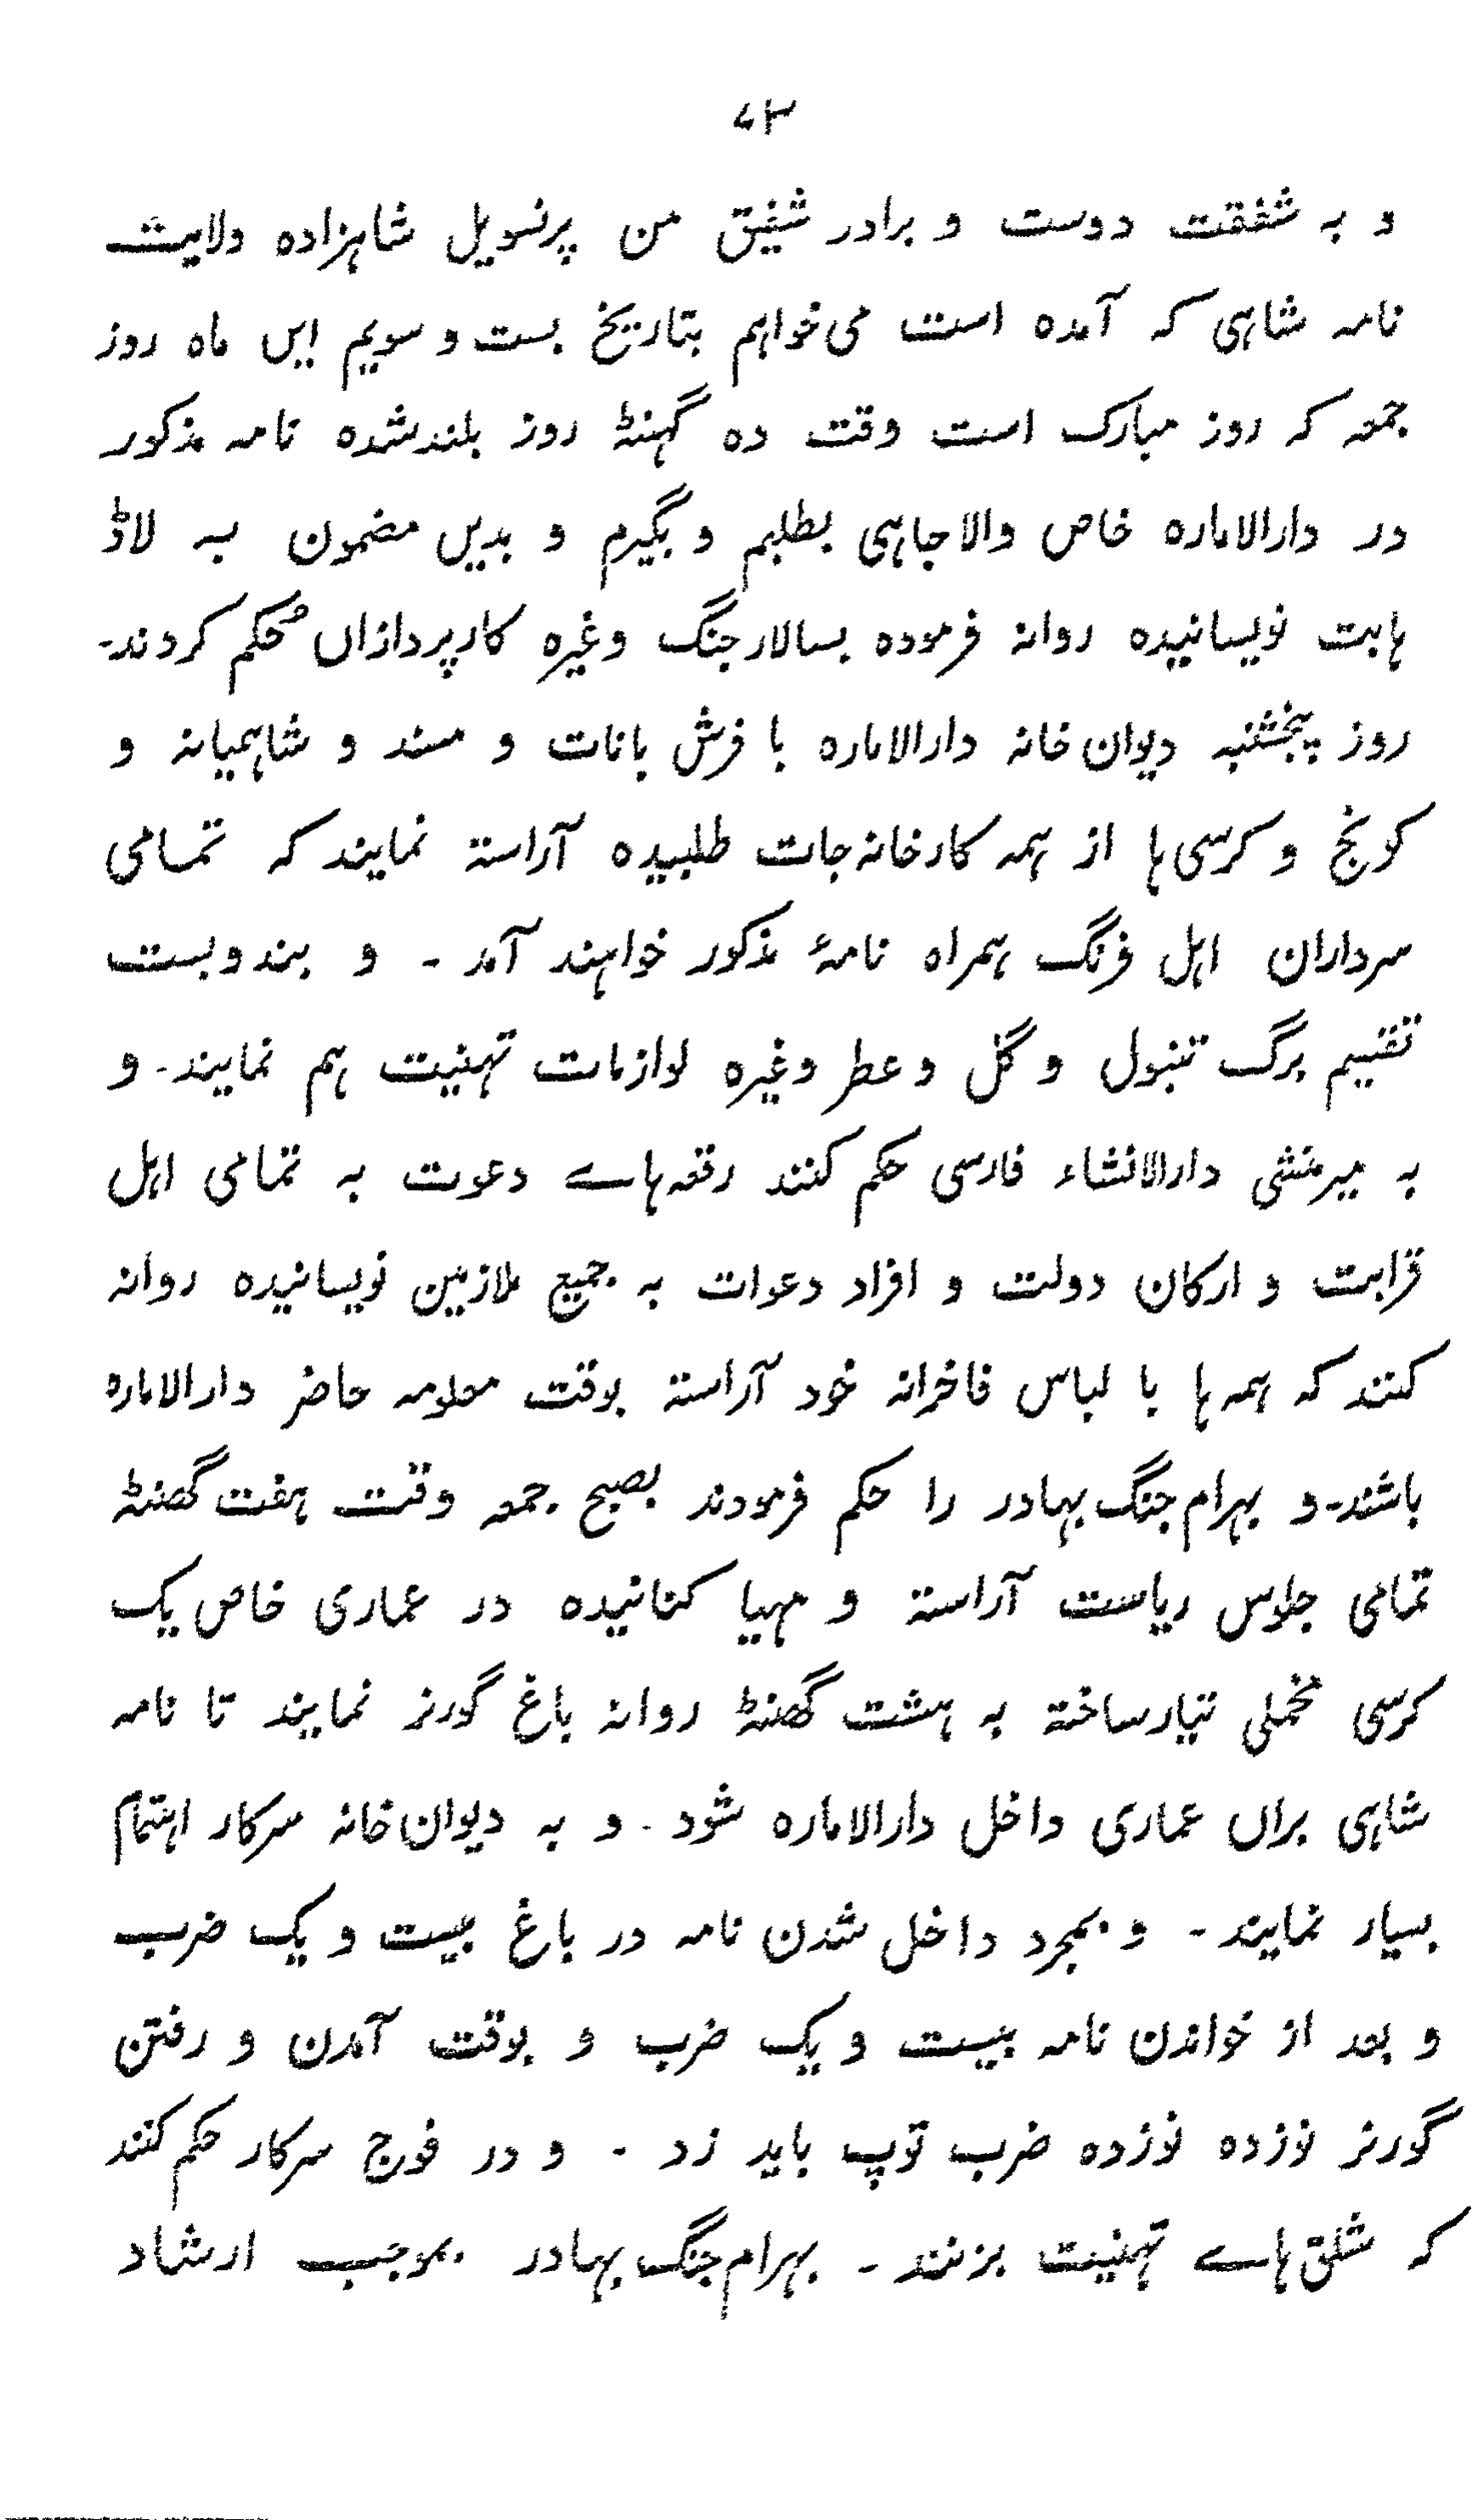 ۷۳
و به شفقت دوست و برادر شفیق من پرنسویل شاہزاده ولایت
نامه شاہی که آمده است می‌خواہم بتاریخ بست و سویم ایں ماه روز
جمعه که روز مبارک است وقت ده گہنٹہ روز بلند شده نامه مذکور
در دارالاماره خاص والاجاہی بطلبم و بگیرم و بدیں مضمون به لاڈ
ہابت نویسانیده روانه فرموده بسالارجنگ وغیره کارپردازاں حُکم کردند۔
روز پنجشنبه دیوان خانه دارالاماره با فرش بانات و مسند و شاہمیانه و
کونچ و کرسی ہا از ہمه کارخانه جات طلبیده آراسته نمایند که تمامی
سرداران اہل فرنگ ہمراه نامۂ مذکور خواہند آمد ۔ و بندوبست
تقسیم برگ تنبول و گل و عطر وغیره لوازمات تہنیت ہم نمایند۔ و
به میر منشی دارالانشاء فارسی حکم کنند رقعه ہاے دعوت به تمامی اہل
قرابت و ارکان دولت و افراد دعوات به جمیع ملازمین نویسانیده روانه
کنند که ہمه ہا با لباس فاخرانه خود آراسته بوقت معلومه حاضر دارالاماره
باشند۔ و بہرام جنگ بہادر را حکم فرمودند بصبح جمعه وقت ہفت گھنٹہ
تمامی جلوس ریاست آراسته و مہیا کنانیده در عماری خاص یک
کرسی مخملی تیار ساخته به ہشت گھنٹہ روانه باغ گورنر نمایند تا نامه
شاہی براں عماری داخل دارالاماره شود ۔ و به دیوان خانه سرکار اہتمام
بسیار نمایند ۔ و بمجرد داخل شدن نامه در باغ بیست و یک ضرب
و بعد از خواندن نامه بیست و یک ضرب و بوقت آمدن و رفتن
گورنر نوزده نوزده ضرب توپ باید زد ۔ و در فوج سرکار حکم کنند
که شلق ہاے تہنیت بزنند ۔ بہرام جنگ بہادر بموجب ارشاد